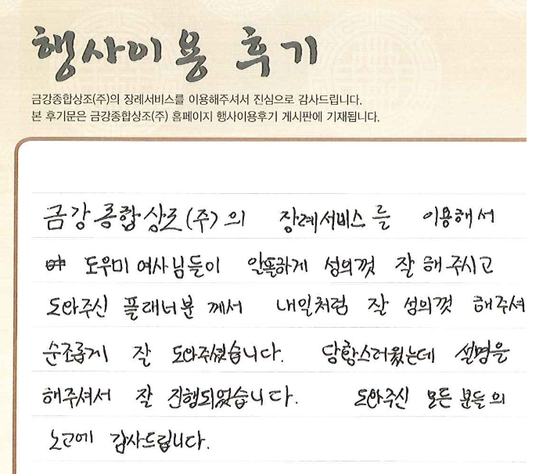 행사이용 후기
금강종합상조(주)의 장례서비스를 이용해주셔서 진심으로 감사드립니다.
본 후기문은 금강종합상조(주) 홈페이지 행사이용후기 게시판에 기재됩니다.
금강종합상조(주)의 장례서비스를 이용해서
도우미 여사님들이 알뜰하게 성의껏 잘 해주시고
도와주신 플래너분께서 내일처럼 잘 성의껏 해주셔
순조롭게 잘 도와주셨습니다. 당황스러웠는데 설명을
해주셔서 잘 진행되었습니다. 도와주신 모든 분들의
노고에 감사드립니다.